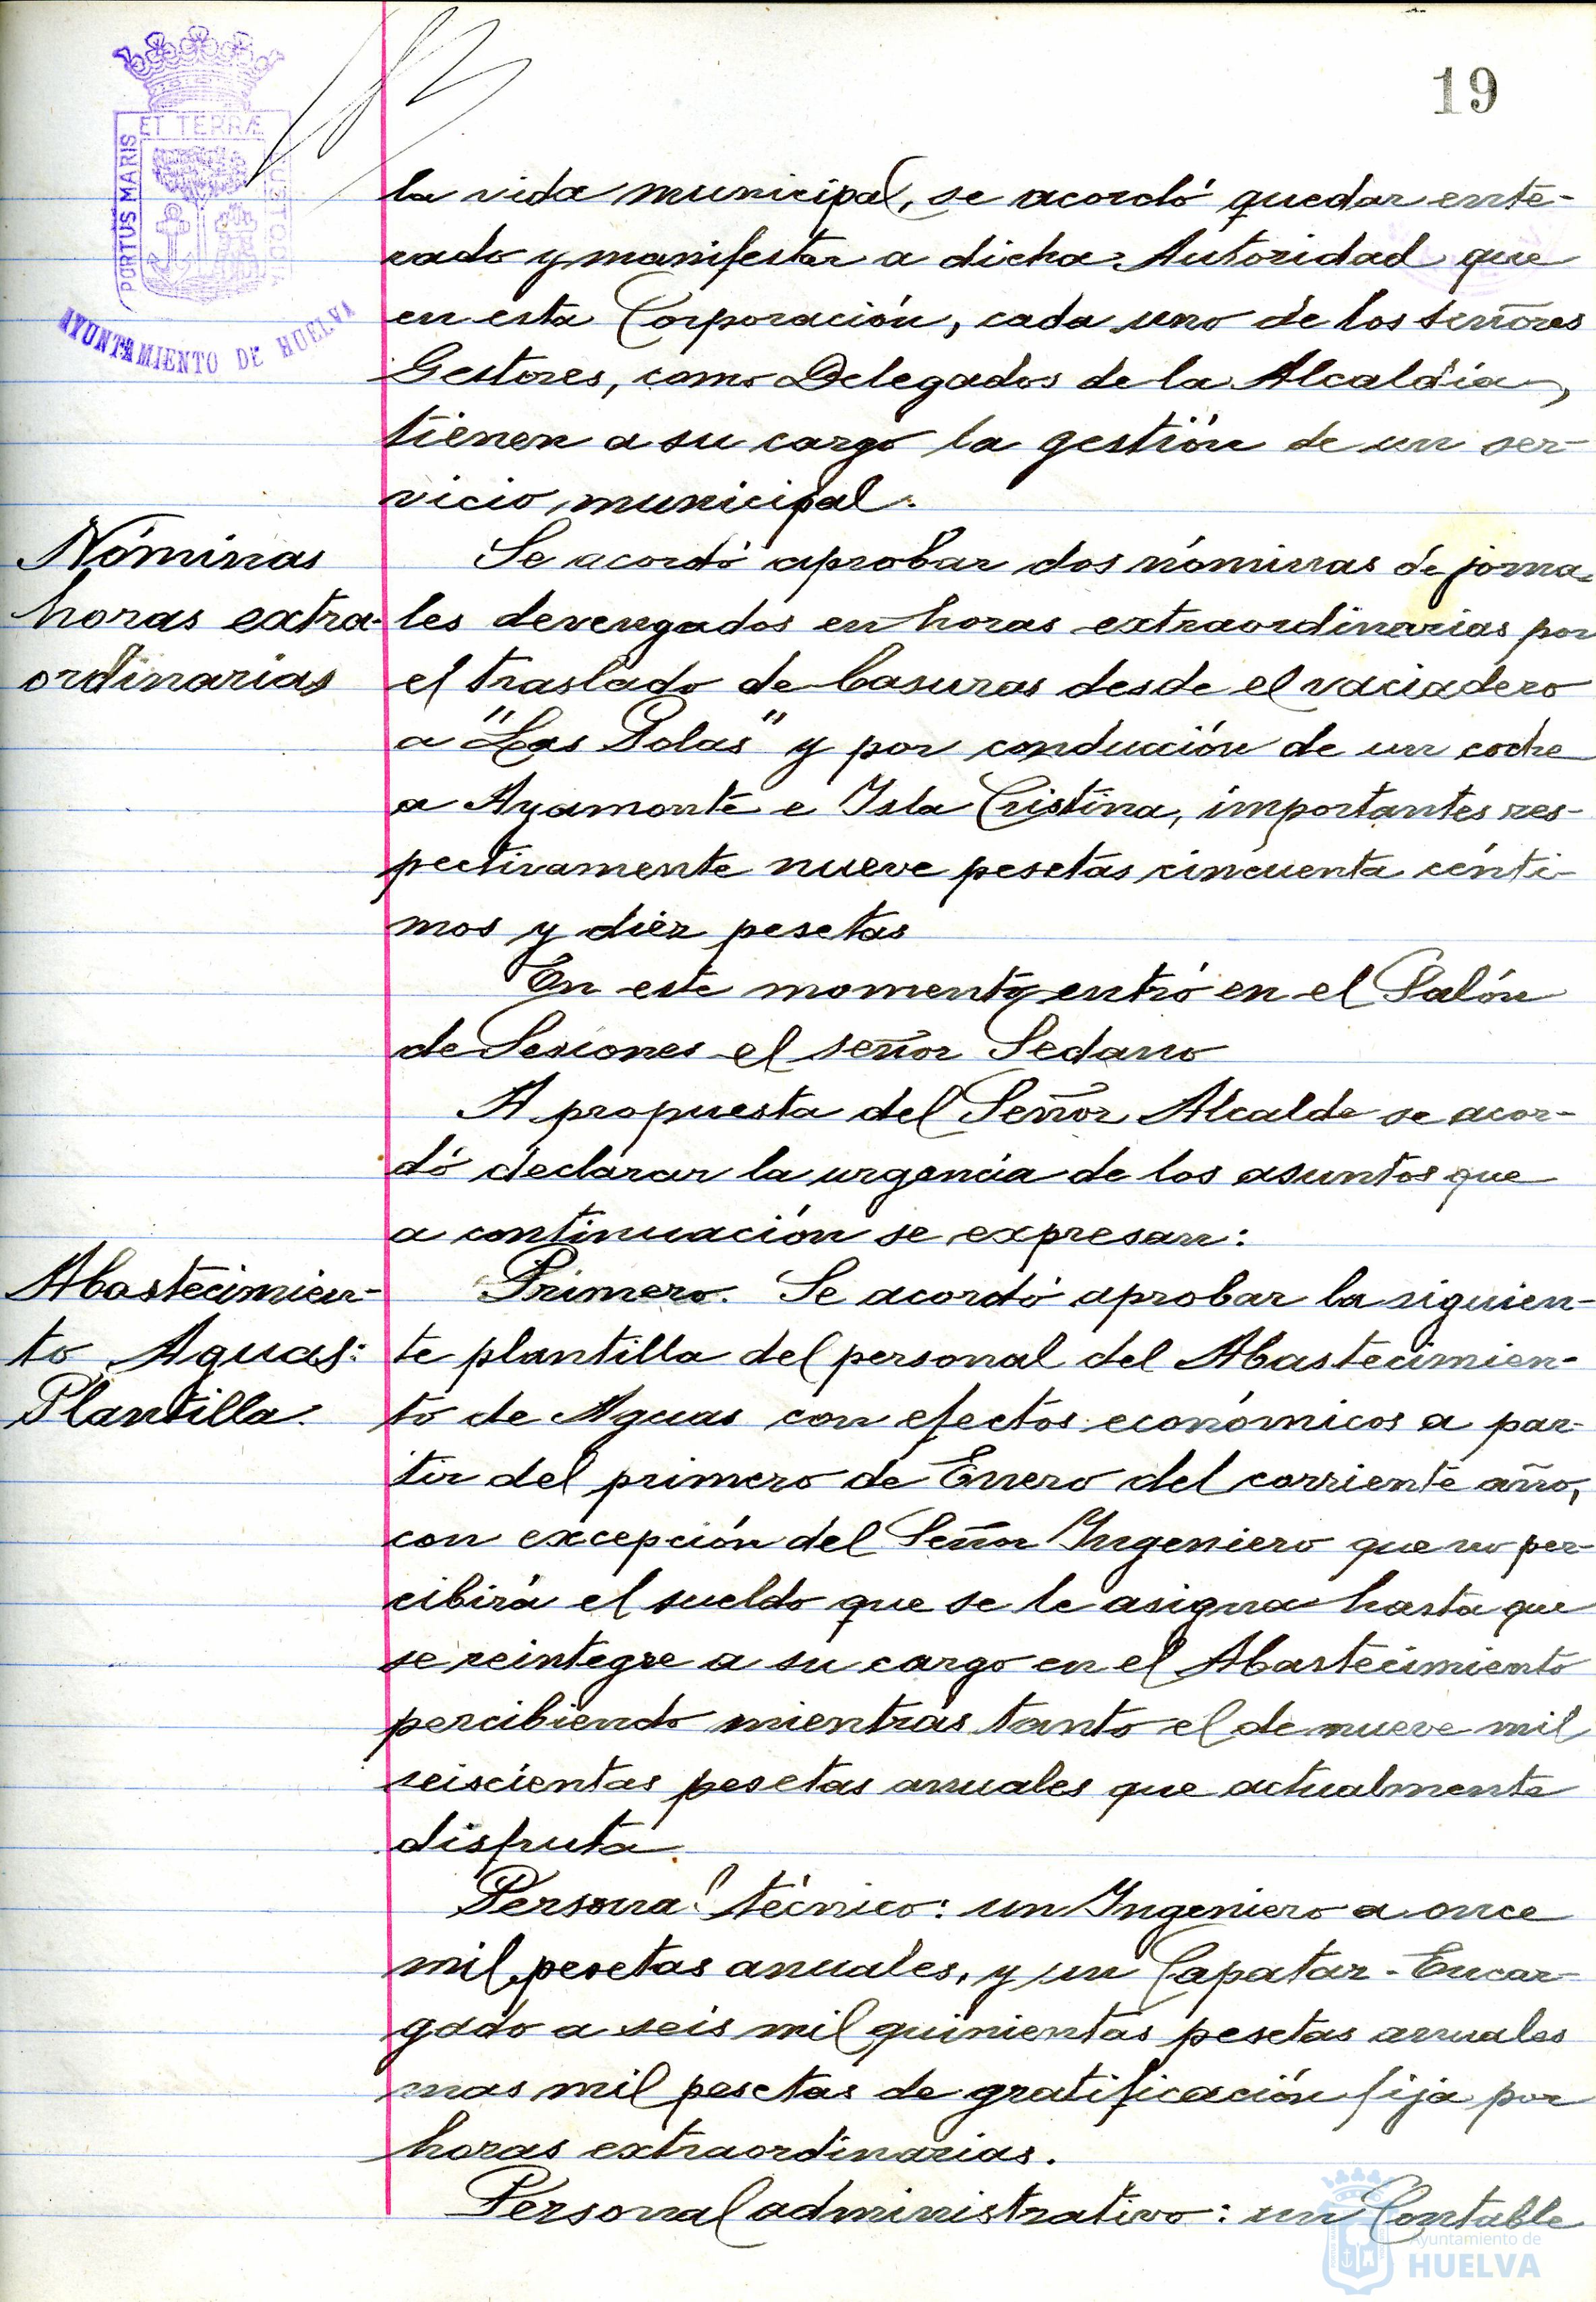 19
ET TERRÆ
PORTUS MARIS
CUSTODIA
AYUNTAMIENTO DE HUELVA
la vida municipal, se acordó quedar ente-
rado y manifestar a dicha Autoridad que
en esta Corporación, cada uno de los señores
Gestores, como Delegados de la Alcaldía,
tienen a su cargo la gestión de un ser-
vicio municipal.
Nóminas
horas extra-
ordinarias
Se acordó aprobar dos nóminas de jorna-
les devengados en horas extraordinarias por
el traslado de basuras desde el vaciadero
a "Las Polas" y por conducción de un coche
a Ayamonte e Isla Cristina, importantes res-
pectivamente nueve pesetas cincuenta cénti-
mos y diez pesetas
En este momento entró en el Salón
de Sesiones el señor Sedano
A propuesta del Señor Alcalde se acor-
dó declarar la urgencia de los asuntos que
a continuación se expresan:
Abastecimien-
to Aguas:
Plantilla.
Primero. Se acordó aprobar la siguien-
te plantilla del personal del Abastecimien-
to de Aguas con efectos económicos a par-
tir del primero de Enero del corriente año,
con excepción del Señor Ingeniero que no per-
cibirá el sueldo que se le asigna hasta que
se reintegre a su cargo en el Abastecimiento
percibiendo mientras tanto el de nueve mil
seiscientas pesetas anuales que actualmente
disfruta.
Personal técnico: un Ingeniero a once
mil pesetas anuales, y un Capataz-Encar-
gado a seis mil quinientas pesetas anuales
mas mil pesetas de gratificación fija por
horas extraordinarias.
Personal administrativo: un Contable
Ayuntamiento de
HUELVA